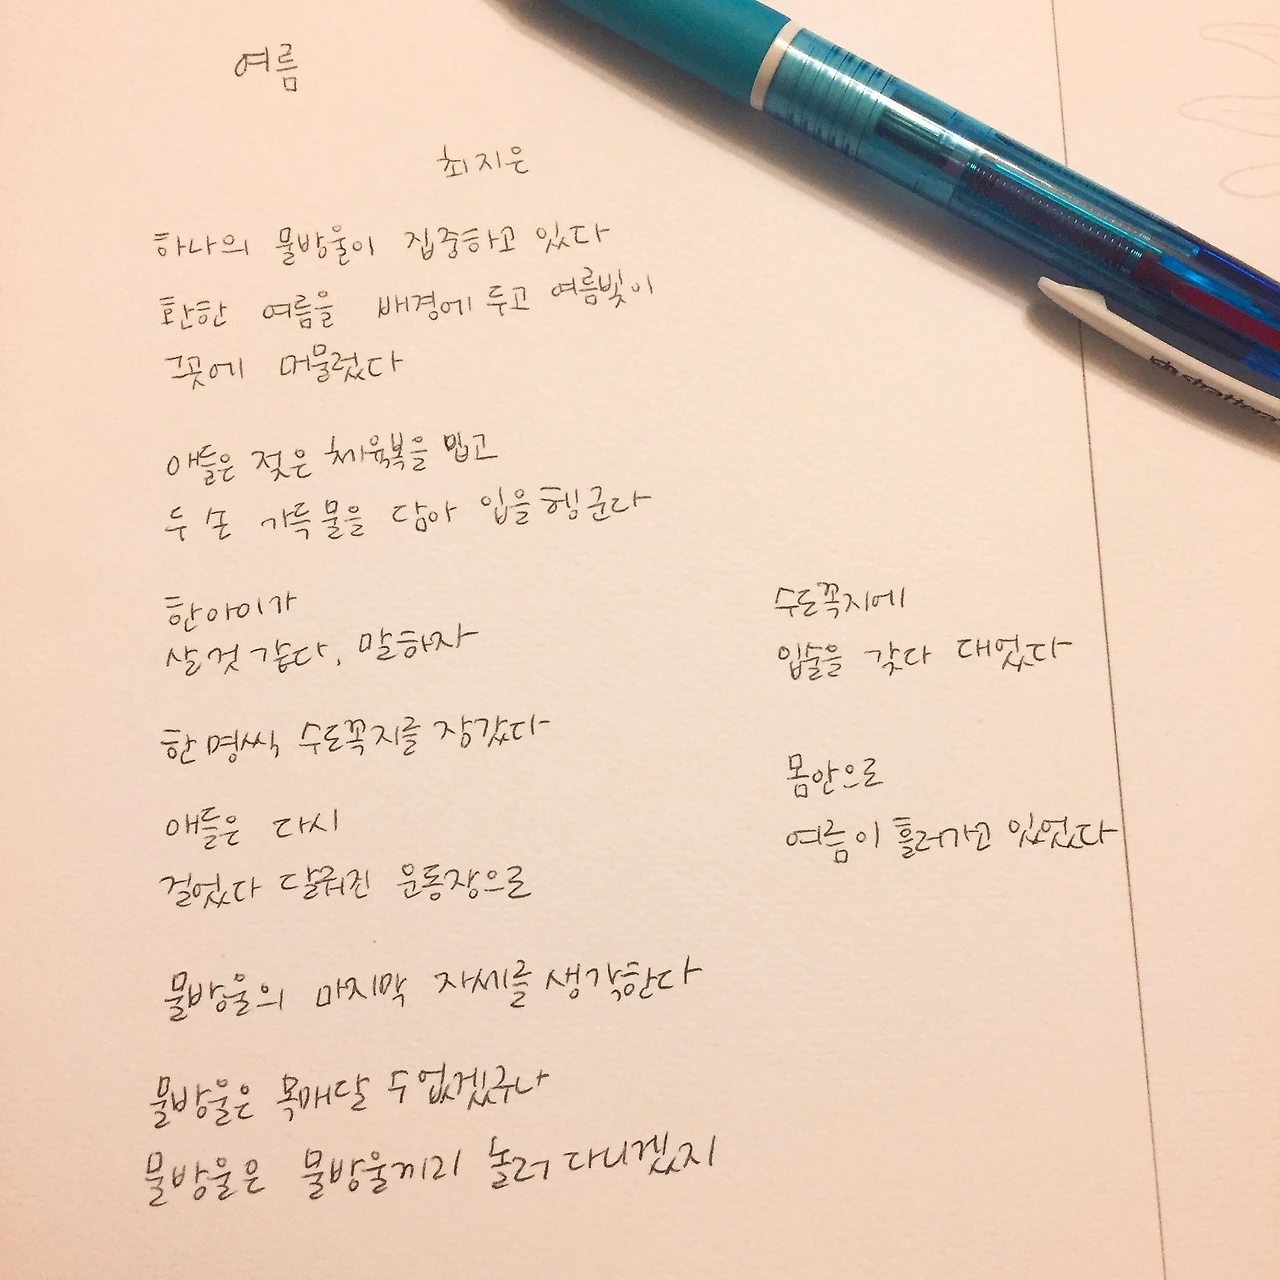 여름
최지은
하나의 물방울이 집중하고 있다
환한 여름을 배경에 두고 여름빛이
그곳에 머물렀다
애들은 젖은 체육복을 입고
두 손 가득 물을 담아 입을 헹군다
한 아이가
살 것 같다, 말하자
한 명씩 수도꼭지를 잠갔다
애들은 다시
걸었다 달궈진 운동장으로
물방울의 마지막 자세를 생각한다
물방울은 목매달 수 없겠구나
물방울은 물방울끼리 놀러 다니겠지
수도꼭지에
입술을 갖다 대었다
몸 안으로
여름이 흘러가고 있었다